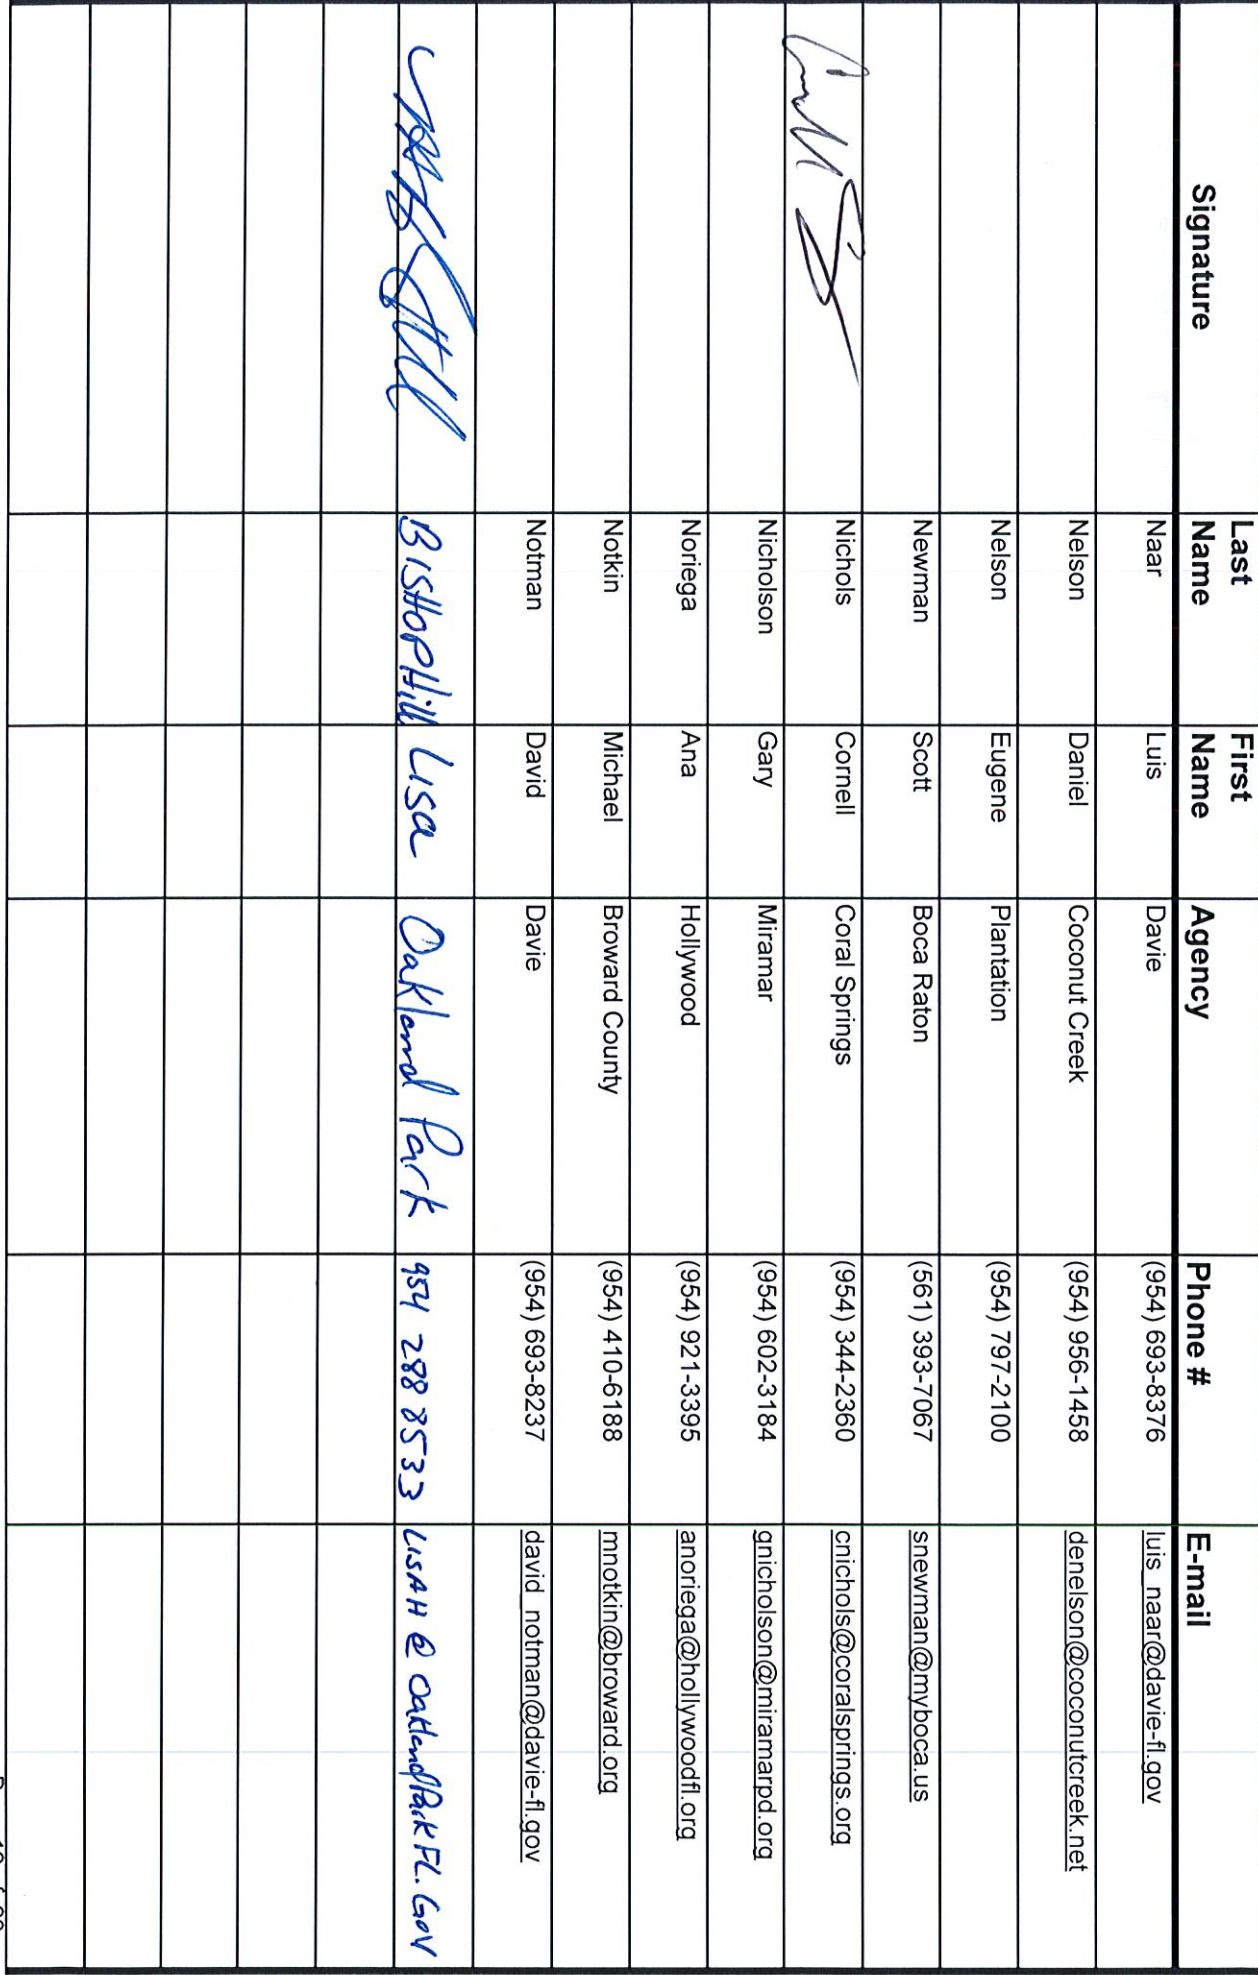 Signature Last Name First Name Agency Phone # E-mail
Naar Luis Davie (954) 693-8376 luis_naar@davie-fl.gov
Nelson Daniel Coconut Creek (954) 956-1458 denelson@coconutcreek.net
Nelson Eugene Plantation (954) 797-2100
Newman Scott Boca Raton (561) 393-7067 snewman@myboca.us
Nichols Cornell Coral Springs (954) 344-2360 cnichols@coralsprings.org
Nicholson Gary Miramar (954) 602-3184 gnicholson@miramarpd.org
Noriega Ana Hollywood (954) 921-3395 anoriega@hollywoodfl.org
Notkin Michael Broward County (954) 410-6188 mnotkin@broward.org
Notman David Davie (954) 693-8237 david_notman@davie-fl.gov
BISHOPHill LISa Oakland Park 954 288 8533 LISAH@OaklandParkFL.GOV